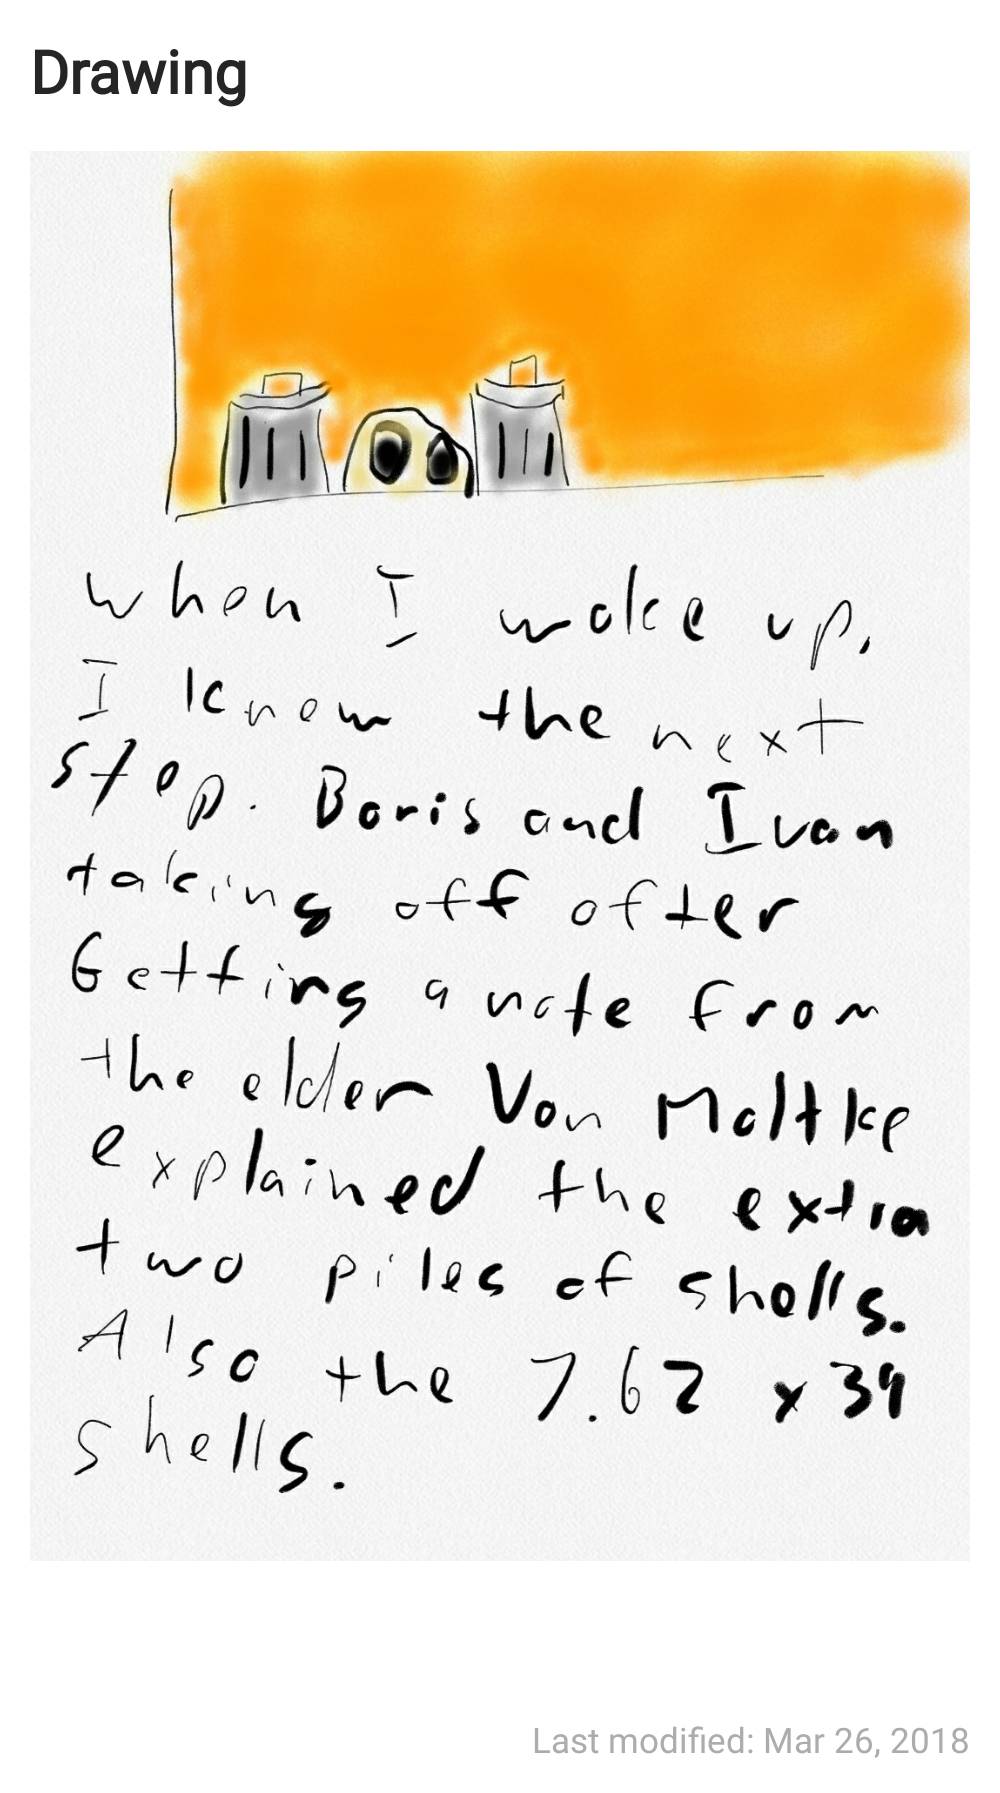 Drawing
When I woke up,
I know the next
stop. Boris and Ivan
taking off after
Getting a note from
the elder Von Moltke
explained the extra
two piles of shells.
Also the 7.62 x 39
shells.
Last modified: Mar 26, 2018